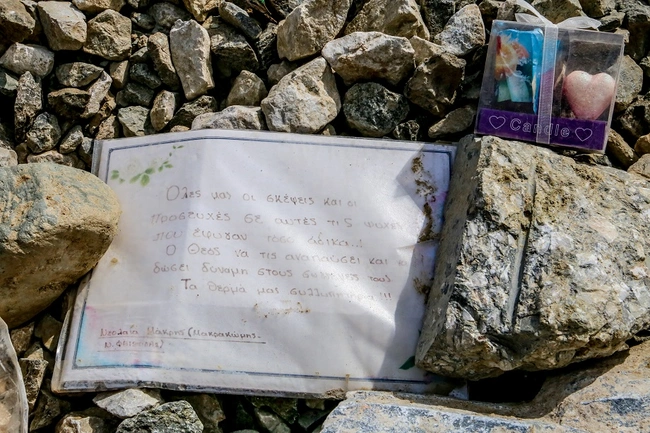 Όλες μας οι σκέψεις και οι
προσευχές σε αυτές τις ψυχές
που έφυγαν τόσο άδικα...!
Ο Θεός να τις αναπαύσει και
δώσει δύναμη στους συγγενείς τους
Τα θερμά μας συλλυπητήρια!!!
Νεολαία Μάκρης (Μακρακώμης
Ν. Φθιώτιδας)
Candle